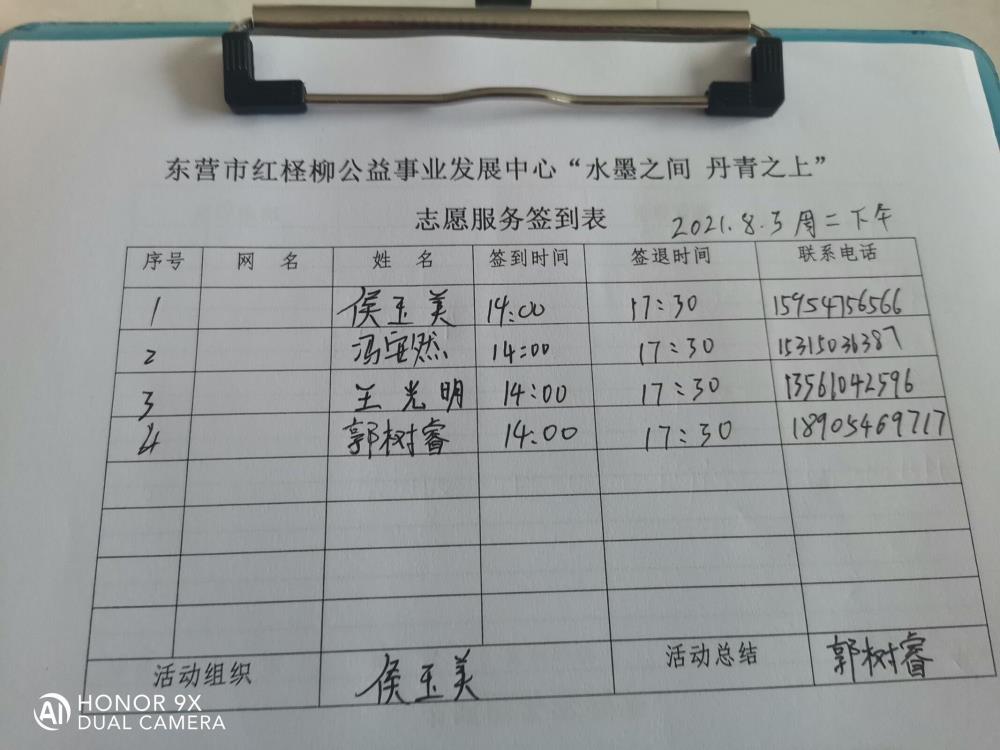 东营市红柽柳公益事业发展中心“水墨之间 丹青之上”
志愿服务签到表 2021.8.3 周二下午
序号 网 名 姓 名 签到时间 签退时间 联系电话
1 侯玉美 14:00 17:30 15954756566
2 冯安然 14:00 17:30 15315036387
3 王光明 14:00 17:30 13561042596
4 郭树睿 14:00 17:30 18905469717
活动组织 侯玉美 活动总结 郭树睿
AI HONOR 9X
DUAL CAMERA